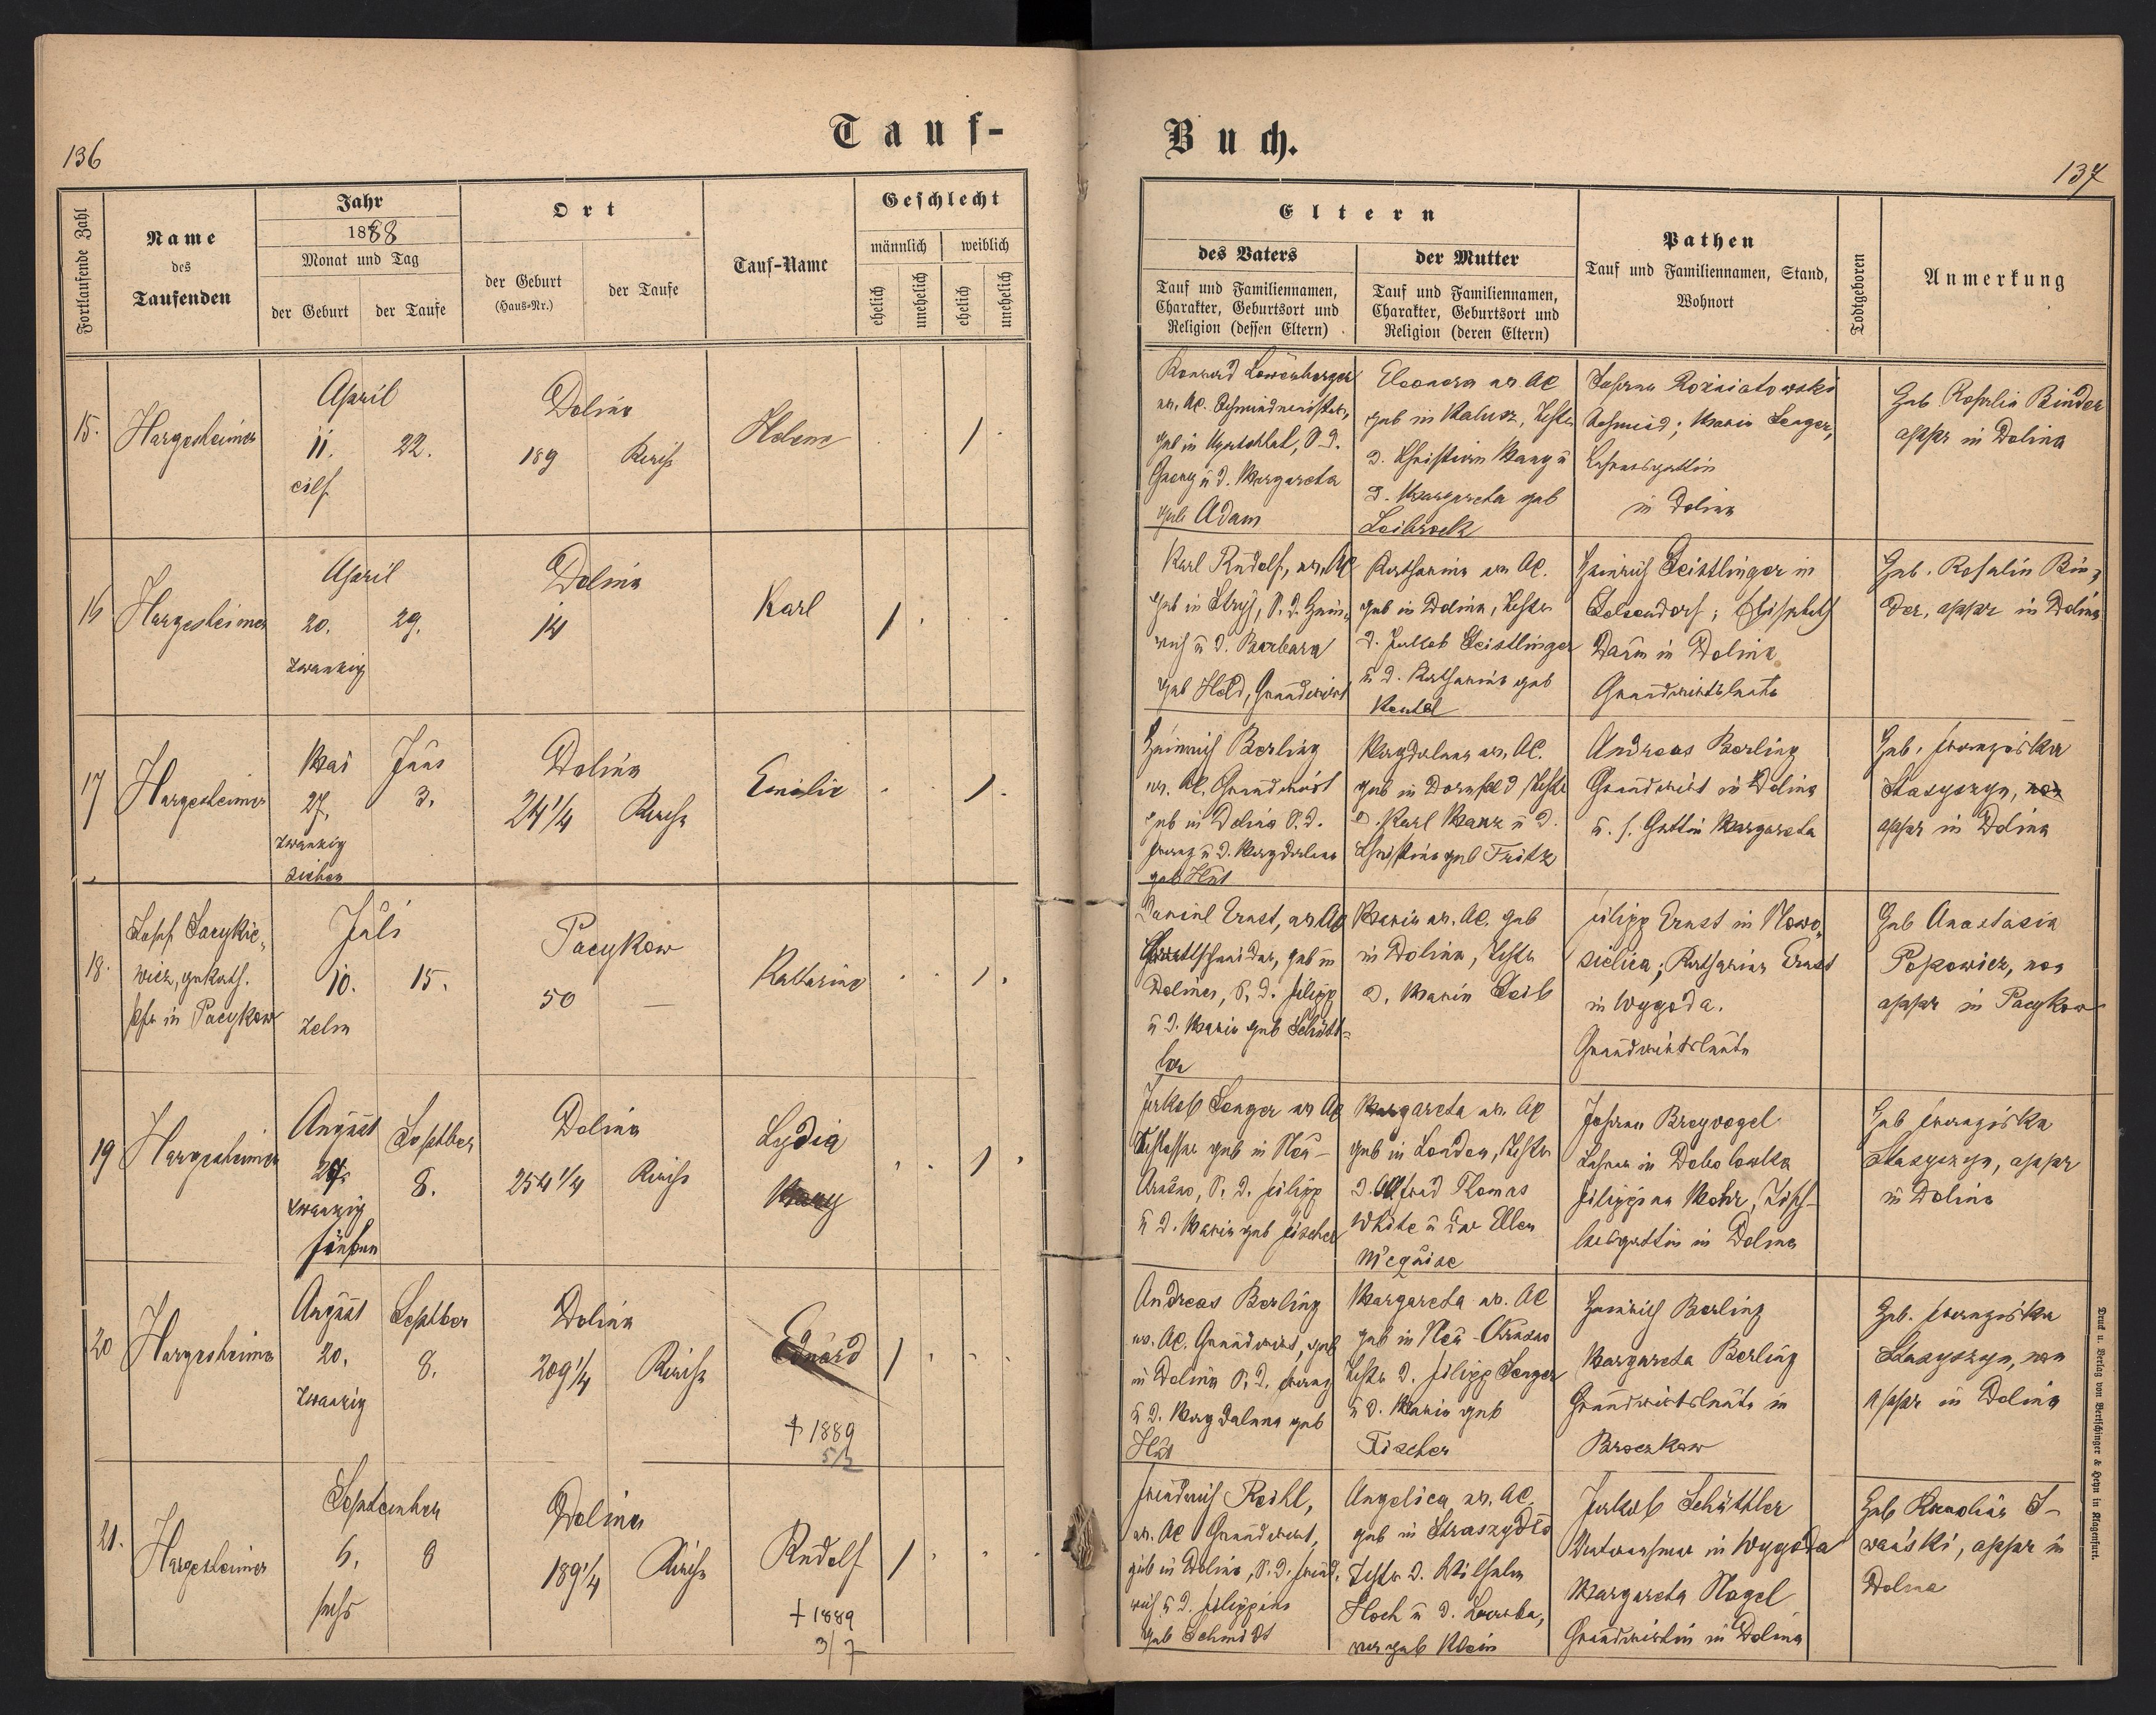 136
Tauf-
Fortlaufende Zahl
Name
des
Taufenden
Jahr
1888
Monat und Tag
der Geburt
der Taufe
Ort
der Geburt
(Haus-Nr.)
der Taufe
Tauf-Name
Geschlecht
männlich
weiblich
ehelich
unehelich
ehelich
unehelich
15.
Hargesheimer
April
11.
22.
eilf
Dolina
189
Kirche
Helena
1
16
Hargesheimer
April
20.
29.
zwanzig
Dolina
14
Karl
1
17
Hargesheimer
Mai
Juni
27.
3.
zwanzig
sieben
Dolina
24 1/4
Kirche
Emilie
1
18.
Josef Sacykie-
wicz, gr kath.
Pfr in Pacykow
Juli
10.
15.
zehn
Pacykow
50
—
Katharina
1
19
Hargesheimer
August
Septber
8.
zwanzig
Dolina
254 1/4
Kirche
Lydia
Mary
1
20
Hargesheimer
August
Septber
20.
8.
zwanzig
Dolina
209 1/4
Kirche
Eduard
1
† 1889
21.
Hargesheimer
September
6.
sechs
Dolina
189 1/4
Kirche
Rudolf
1
† 1889
3/7
Buch.
137
Eltern
des Vaters
Tauf und Familiennamen,
Charakter, Geburtsort und
Religion (dessen Eltern)
der Mutter
Tauf und Familiennamen,
Charakter, Geburtsort und
Religion (deren Eltern)
Pathen
Tauf und Familiennamen, Stand,
Wohnort
Todtgeboren
Anmerkung
Konrad Löwenberger
ev. AC. Schmiedmeister,
geb in Ugartsthal, S. d.
Georg u d. Margareta
geb Adam
Eleonora ev. AC
geb in Kalusz, Tochter
d. Christian Mang u
d. Margareta geb
Leibrock
Johann Rozniatowski
Schmied; Maria Senger,
Lehrersgattin
in Dolina
Heb. Rosalia Binder
appr in Dolina
Karl Rudolf, ev. AC
geb in Stryj, S. d. Hein-
rich u d. Barbara
geb Held, Grundwirt
Katharina ev AC.
geb in Dolina, Tochter
d. Jakob Geistlinger
u d. Katharina geb
Heinrich Geistlinger in
Gelsendorf; Elisabeth
Daum in Dolina
Grundwirtsleute
Heb. Rosalia Bin-
der, appr in Dolina
Heinrich Berling
ev. AC. Grundwirt
geb in Dolina S. d.
Franz u d. Magdalena
geb Hut
Magdalena ev. AC.
geb in Dornfeld Tochter
d. Karl Manz u d.
Christina geb Fritz
Andreas Berling
Grundwirt in Dolina
u. s. Gattin Margareta
Heb. Franziska
Stasyszyn,
appr in Dolina
Daniel Ernst, ev AC
Brettschneider, geb in
Dolina, S. d. Filipp
u d. Maria geb Schütt-
ler
Maria ev. AC. geb
in Dolina, Tochter
d. Maria Leib
Filipp Ernst in Nowo-
sielica; Katharina Ernst
in Wygoda.
Grundwirtsleute
Heb Anastasia
Popowicz, non
appr in Pacykow
Jakob Senger ev AC
Schlosser geb in Neu-
S. d. Filipp
u d. Maria geb Fischer
Margareta ev. AC
geb in London, Tochter
d. Alfred Thomas
White u der Ellen
Johann Breyvogel
Lehrer in
Filippina Mohr, Tisch-
lersgattin in Dolina
Heb Franziska
Stasyszyn, appr
in Dolina
Andreas Berling
ev. AC. Grundwirt, geb
in Dolina S. d. Franz
u d. Magdalena geb
Hut
Margareta ev. AC
geb in Neu-
Tochter d. Filipp Senger
u d. Maria geb
Fischer
Heinrich Berling
Margareta Berling
Grundwirtsleute in
Broczkow
Heb. Franziska
Stasyszyn, non
appr in Dolina
Friedrich Reihl,
ev. AC Grundwirt,
geb in Dolina, S. d. Fried-
rich u d. Filippina
geb Schmidt
Angelica ev. AC
geb in Straszydlo
Tochter d. Wilhelm
Hoch u d.
geb Klein
Jakob Schüttler
in Wygoda
Margareta Nagel
Grundwirtin in Dolina
Heb
appr in
Dolina
Druck u. Verlag von Bertschinger & Heyn in Klagenfurt.